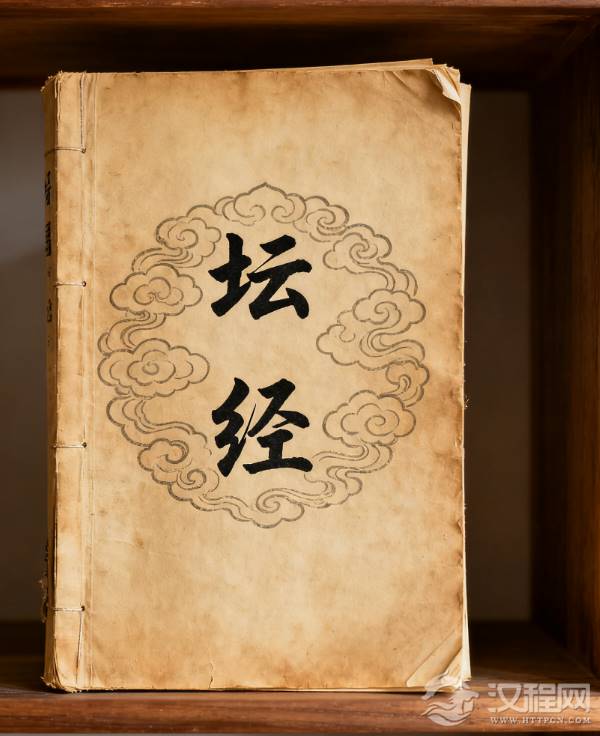 坛
经
汉程网
WWW.HTTPCN.COM